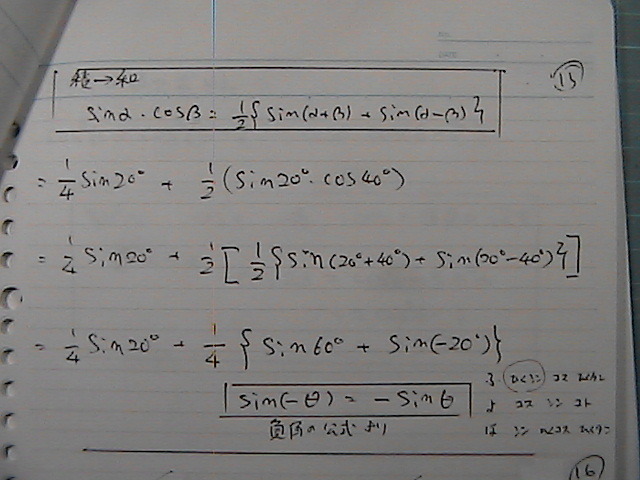 NO.
DATE
⑮
積→和
sinα・cosβ = 1/2{sin(α+β) + sin(α-β)}
= 1/4 sin20° + 1/2 (sin20°・cos40°)
= 1/4 sin20° + 1/2 [1/2{sin(20°+40°) + sin(20°-40°)}]
= 1/4 sin20° + 1/4 {sin60° + sin(-20°)}
sin(-θ) = -sinθ
負角の公式より
⑯